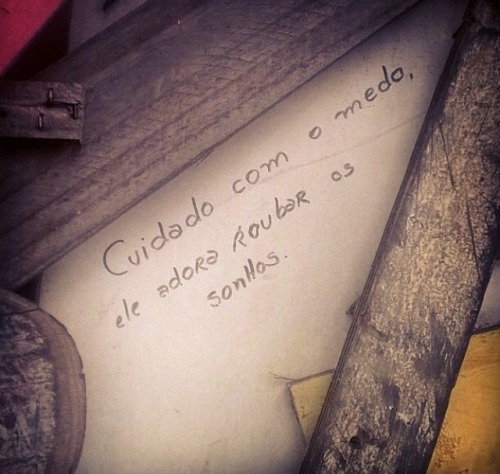 Cuidado com o medo,
ele adora roubar os
sonhos.